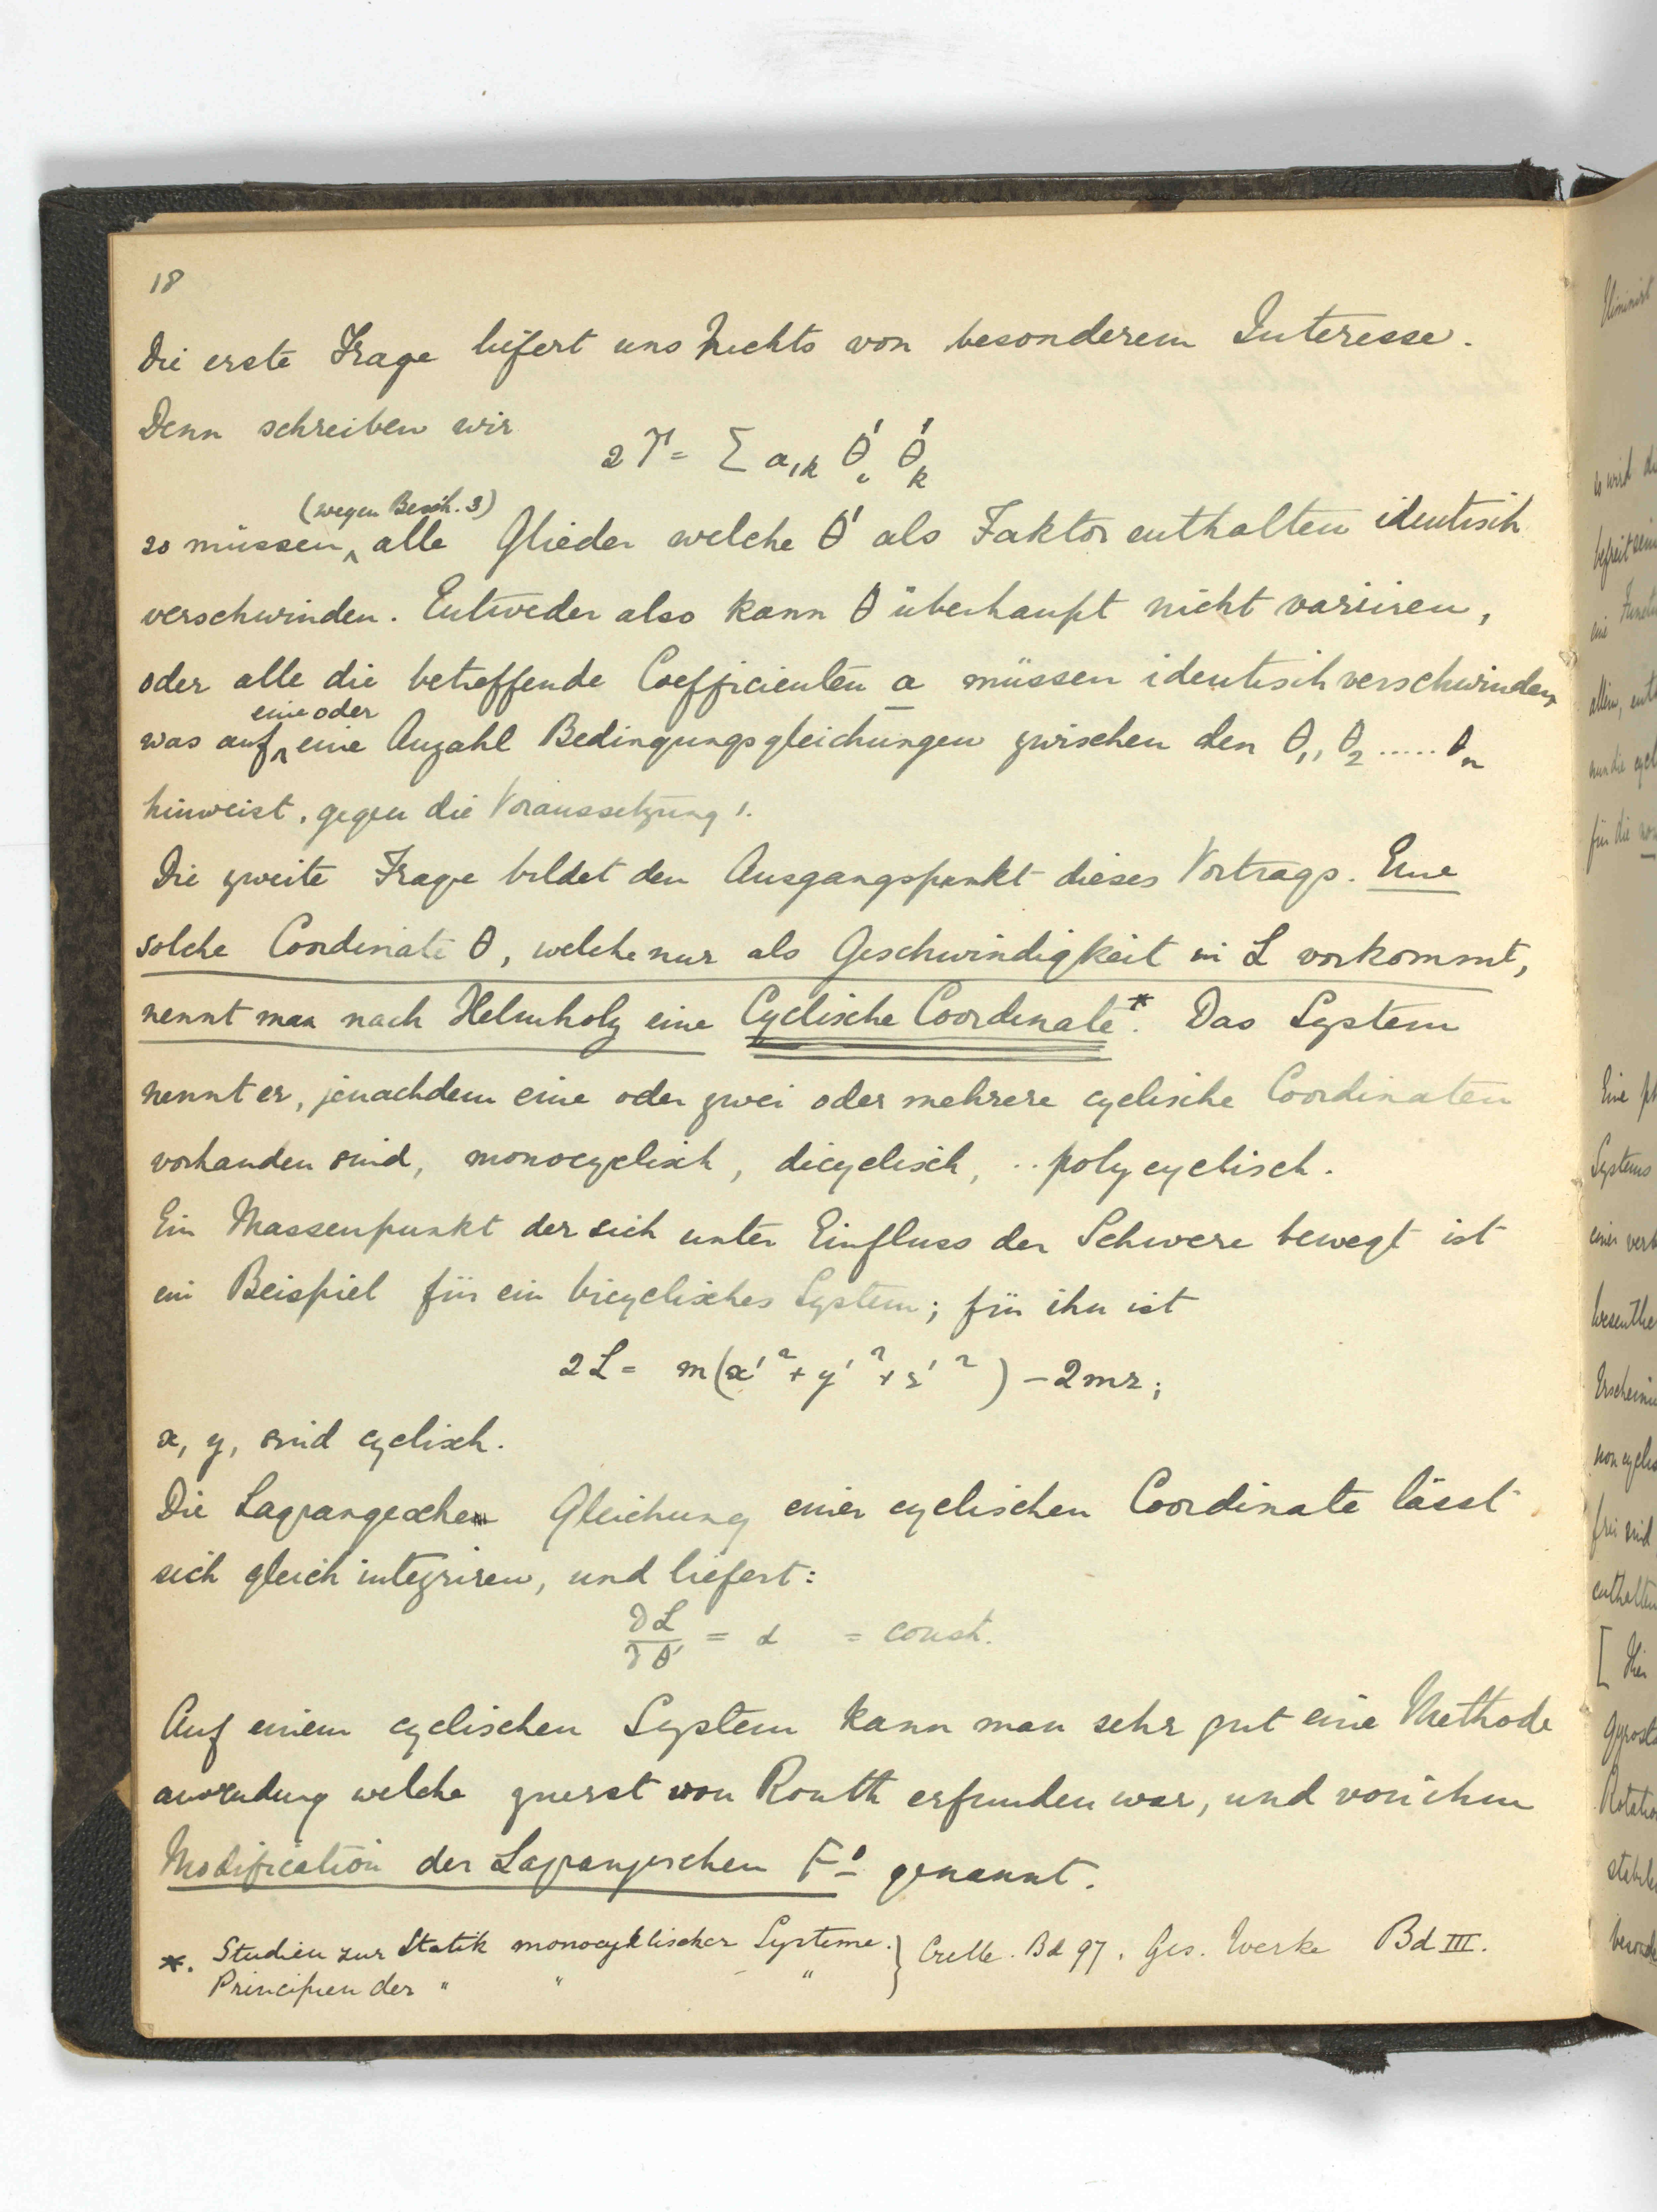 18
Die erste Frage liefert uns Nichts von besonderem Interesse.
Denn schreiben wir
2T = Σ a_{ik} θ'_i θ'_k
(wegen Besch. 3)
so müssen ‸ alle Glieder welche θ' als Faktor enthalten identisch
verschwinden. Entweder also kann θ überhaupt nicht variiren,
oder alle die betreffende Coefficienten a müssen identisch verschwinden,
eine oder
was auf ‸ eine Anzahl Bedingungsgleichungen zwischen den θ₁, θ₂ ..... θₙ
hinweist, gegen die Voraussetzung 1.
Die zweite Frage bildet den Ausgangspunkt dieses Vortrags. Eine
solche Coordinate θ, welche nur als Geschwindigkeit in L vorkommt,
nennt man nach Helmholz eine Cyclische Coordinate*. Das System
nennt er, jenachdem eine oder zwei oder mehrere cyclische Coordinaten
vorhanden sind, monocyclisch, dicyclisch, .. polycyclisch.
Ein Massenpunkt der sich unter Einfluss der Schwere bewegt ist
ein Beispiel für ein bicyclisches System; für ihn ist
2L = m(x'² + y'² + z'²) - 2mz;
x, y, sind cyclisch.
Die Lagrangesche Gleichung einer cyclischen Coordinate lässt
sich gleich integriren, und liefert:
∂L/∂θ' = α = const.
Auf einem cyclischen System kann man sehr gut eine Methode
welche zuerst von Routh erfunden war, und von ihm
Modification der Lagrangeschen Fⁿ genannt.
*. Studien zur Statik monocyklischer Systeme. } Crelle. Bd 97. Ges. Werke Bd III.
Principien der " " "